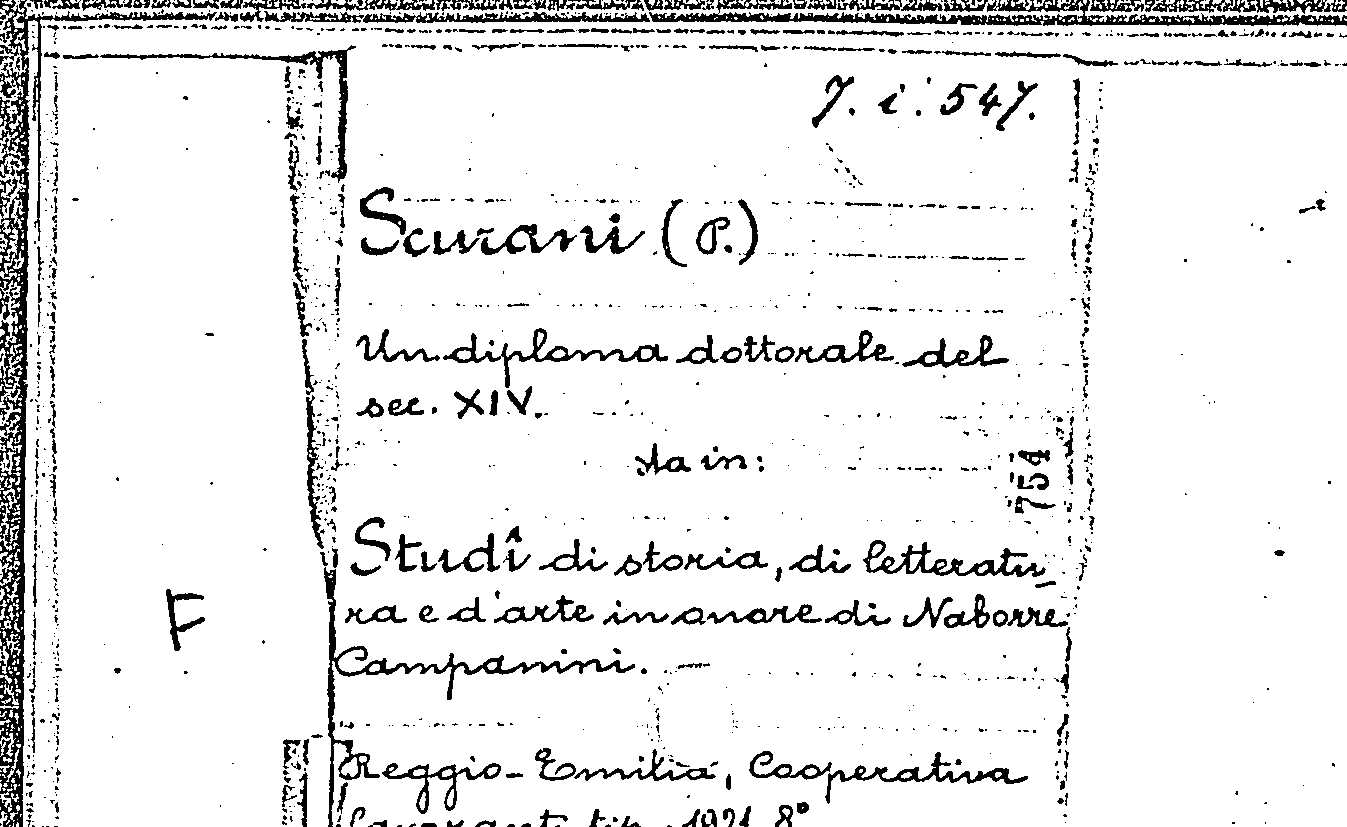 7. i. 547.
Scurani (P.)
Un diploma dottorale del
sec. XIV.
sta in:
754
Studî di storia, di letteratu-
ra e d'arte in onore di Naborre
Campanini. —
F
Reggio-Emilia, Cooperativa
lavoranti tip. 1921 8°